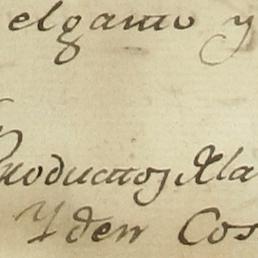 el ganto y
Productos Xla
Yden Cos